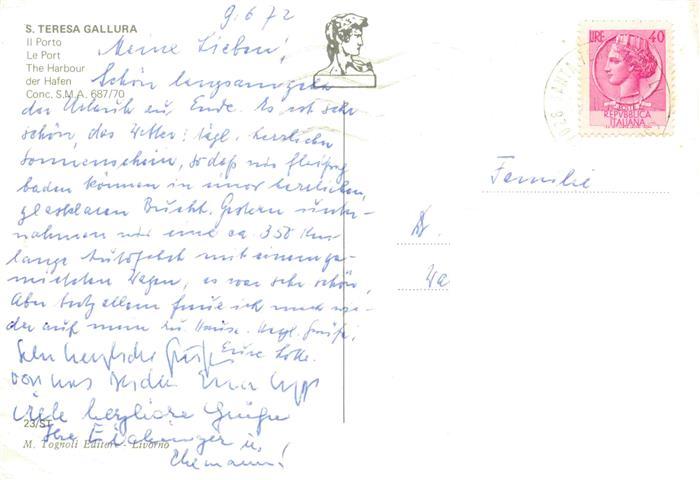 9.6.72
S. TERESA GALLURA
Il Porto
Le Port
The Harbour
der Hafen
Conc. S.M.A. 687/70
Meine Lieben!
Schön langsam geht
der Urlaub zu Ende. Es ist sehr
schön, das Wetter: tägl. herrlichen
Sonnenschein, so daß wir fleißig
baden können in einer herrlichen,
glasklaren Bucht. Gestern unter-
nahmen wir eine ca 350 Km
lange Autofahrt mit einem ge-
mieteten Wagen, es war sehr schön,
Aber trotz allem freue ich mich wie-
der auf mein zu Hause. Herzl. Grüße,
Eure Lotte.
Sehr herzliche Grüße
von uns
viele herzliche Grüße
Ihre u.
Ehemann!
23/ST
M. Tognoli Editore - Livorno
LIRE 40
REPVBBLICA
ITALIANA
Familie